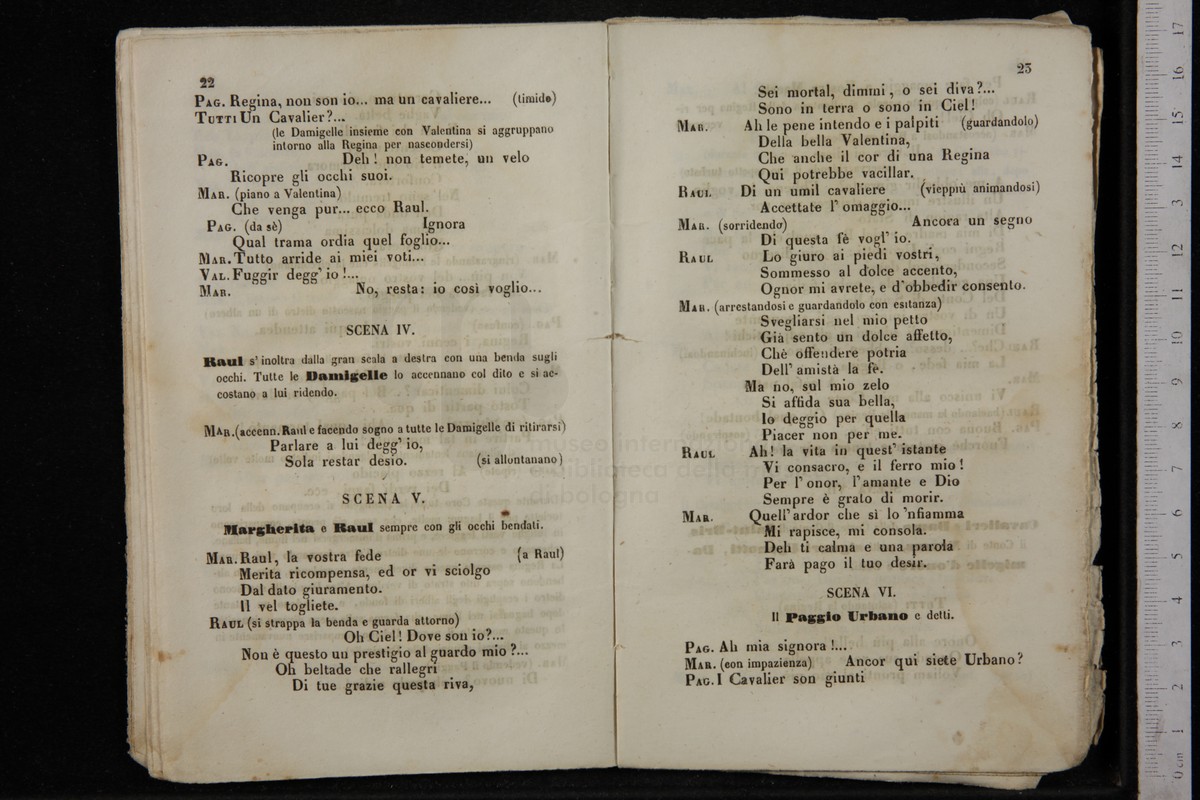 22
PAG. Regina, non son io... ma un cavaliere... (timido)
TUTTI Un Cavalier?...
(le Damigelle insieme con Valentina si aggruppano
intorno alla Regina per nascondersi)
PAG. Deh! non temete, un velo
Ricopre gli occhi suoi.
MAR. (piano a Valentina)
Che venga pur... ecco Raul.
PAG. (da sè) Ignora
Qual trama ordia quel foglio...
MAR. Tutto arride ai miei voti...
VAL. Fuggir degg' io!...
MAR. No, resta: io così voglio...
SCENA IV.
Raul s' inoltra dalla gran scala a destra con una benda sugli
occhi. Tutte le Damigelle lo accennano col dito e si ac-
costano a lui ridendo.
MAR. (accenn. Raul e facendo sogno a tutte le Damigelle di ritirarsi)
Parlare a lui degg' io,
Sola restar desio. (si allontanano)
SCENA V.
Margherita e Raul sempre con gli occhi bendati.
MAR. Raul, la vostra fede (a Raul)
Merita ricompensa, ed or vi sciolgo
Dal dato giuramento.
Il vel togliete.
RAUL (si strappa la benda e guarda attorno)
Oh Ciel! Dove son io?...
Non è questo un prestigio al guardo mio?...
Oh beltade che rallegri
Di tue grazie questa riva,
23
Sei mortal, dimmi, o sei diva?...
Sono in terra o sono in Ciel!
MAR. Ah le pene intendo e i palpiti (guardandolo)
Della bella Valentina,
Che anche il cor di una Regina
Qui potrebbe vacillar.
RAUL Di un umil cavaliere (vieppiù animandosi)
Accettate l' omaggio...
MAR. (sorridendo) Ancora un segno
Di questa fè vogl' io.
RAUL Lo giuro ai piedi vostri,
Sommesso al dolce accento,
Ognor mi avrete, e d'obbedir consento.
MAR. (arrestandosi e guardandolo con esitanza)
Svegliarsi nel mio petto
Già sento un dolce affetto,
Chè offendere potria
Dell' amistà la fè.
Ma no, sul mio zelo
Si affida sua bella,
Io deggio per quella
Piacer non per me.
RAUL Ah! la vita in quest' istante
Vi consacro, e il ferro mio!
Per l' onor, l' amante e Dio
Sempre è grato di morir.
MAR. Quell' ardor che sì lo 'nfiamma
Mi rapisce, mi consola.
Deh ti calma e una parola
Farà pago il tuo desir.
SCENA VI.
Il Paggio Urbano e detti.
PAG. Ah mia signora!...
MAR. (con impazienza) Ancor qui siete Urbano?
PAG. I Cavalier son giunti